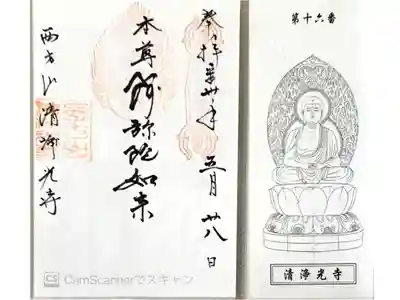 第十六番
清浄光寺
奉拝 平成卅年 五月廿八日
本尊阿弥陀如来
西方山 清浄光寺
CS CamScannerでスキャン